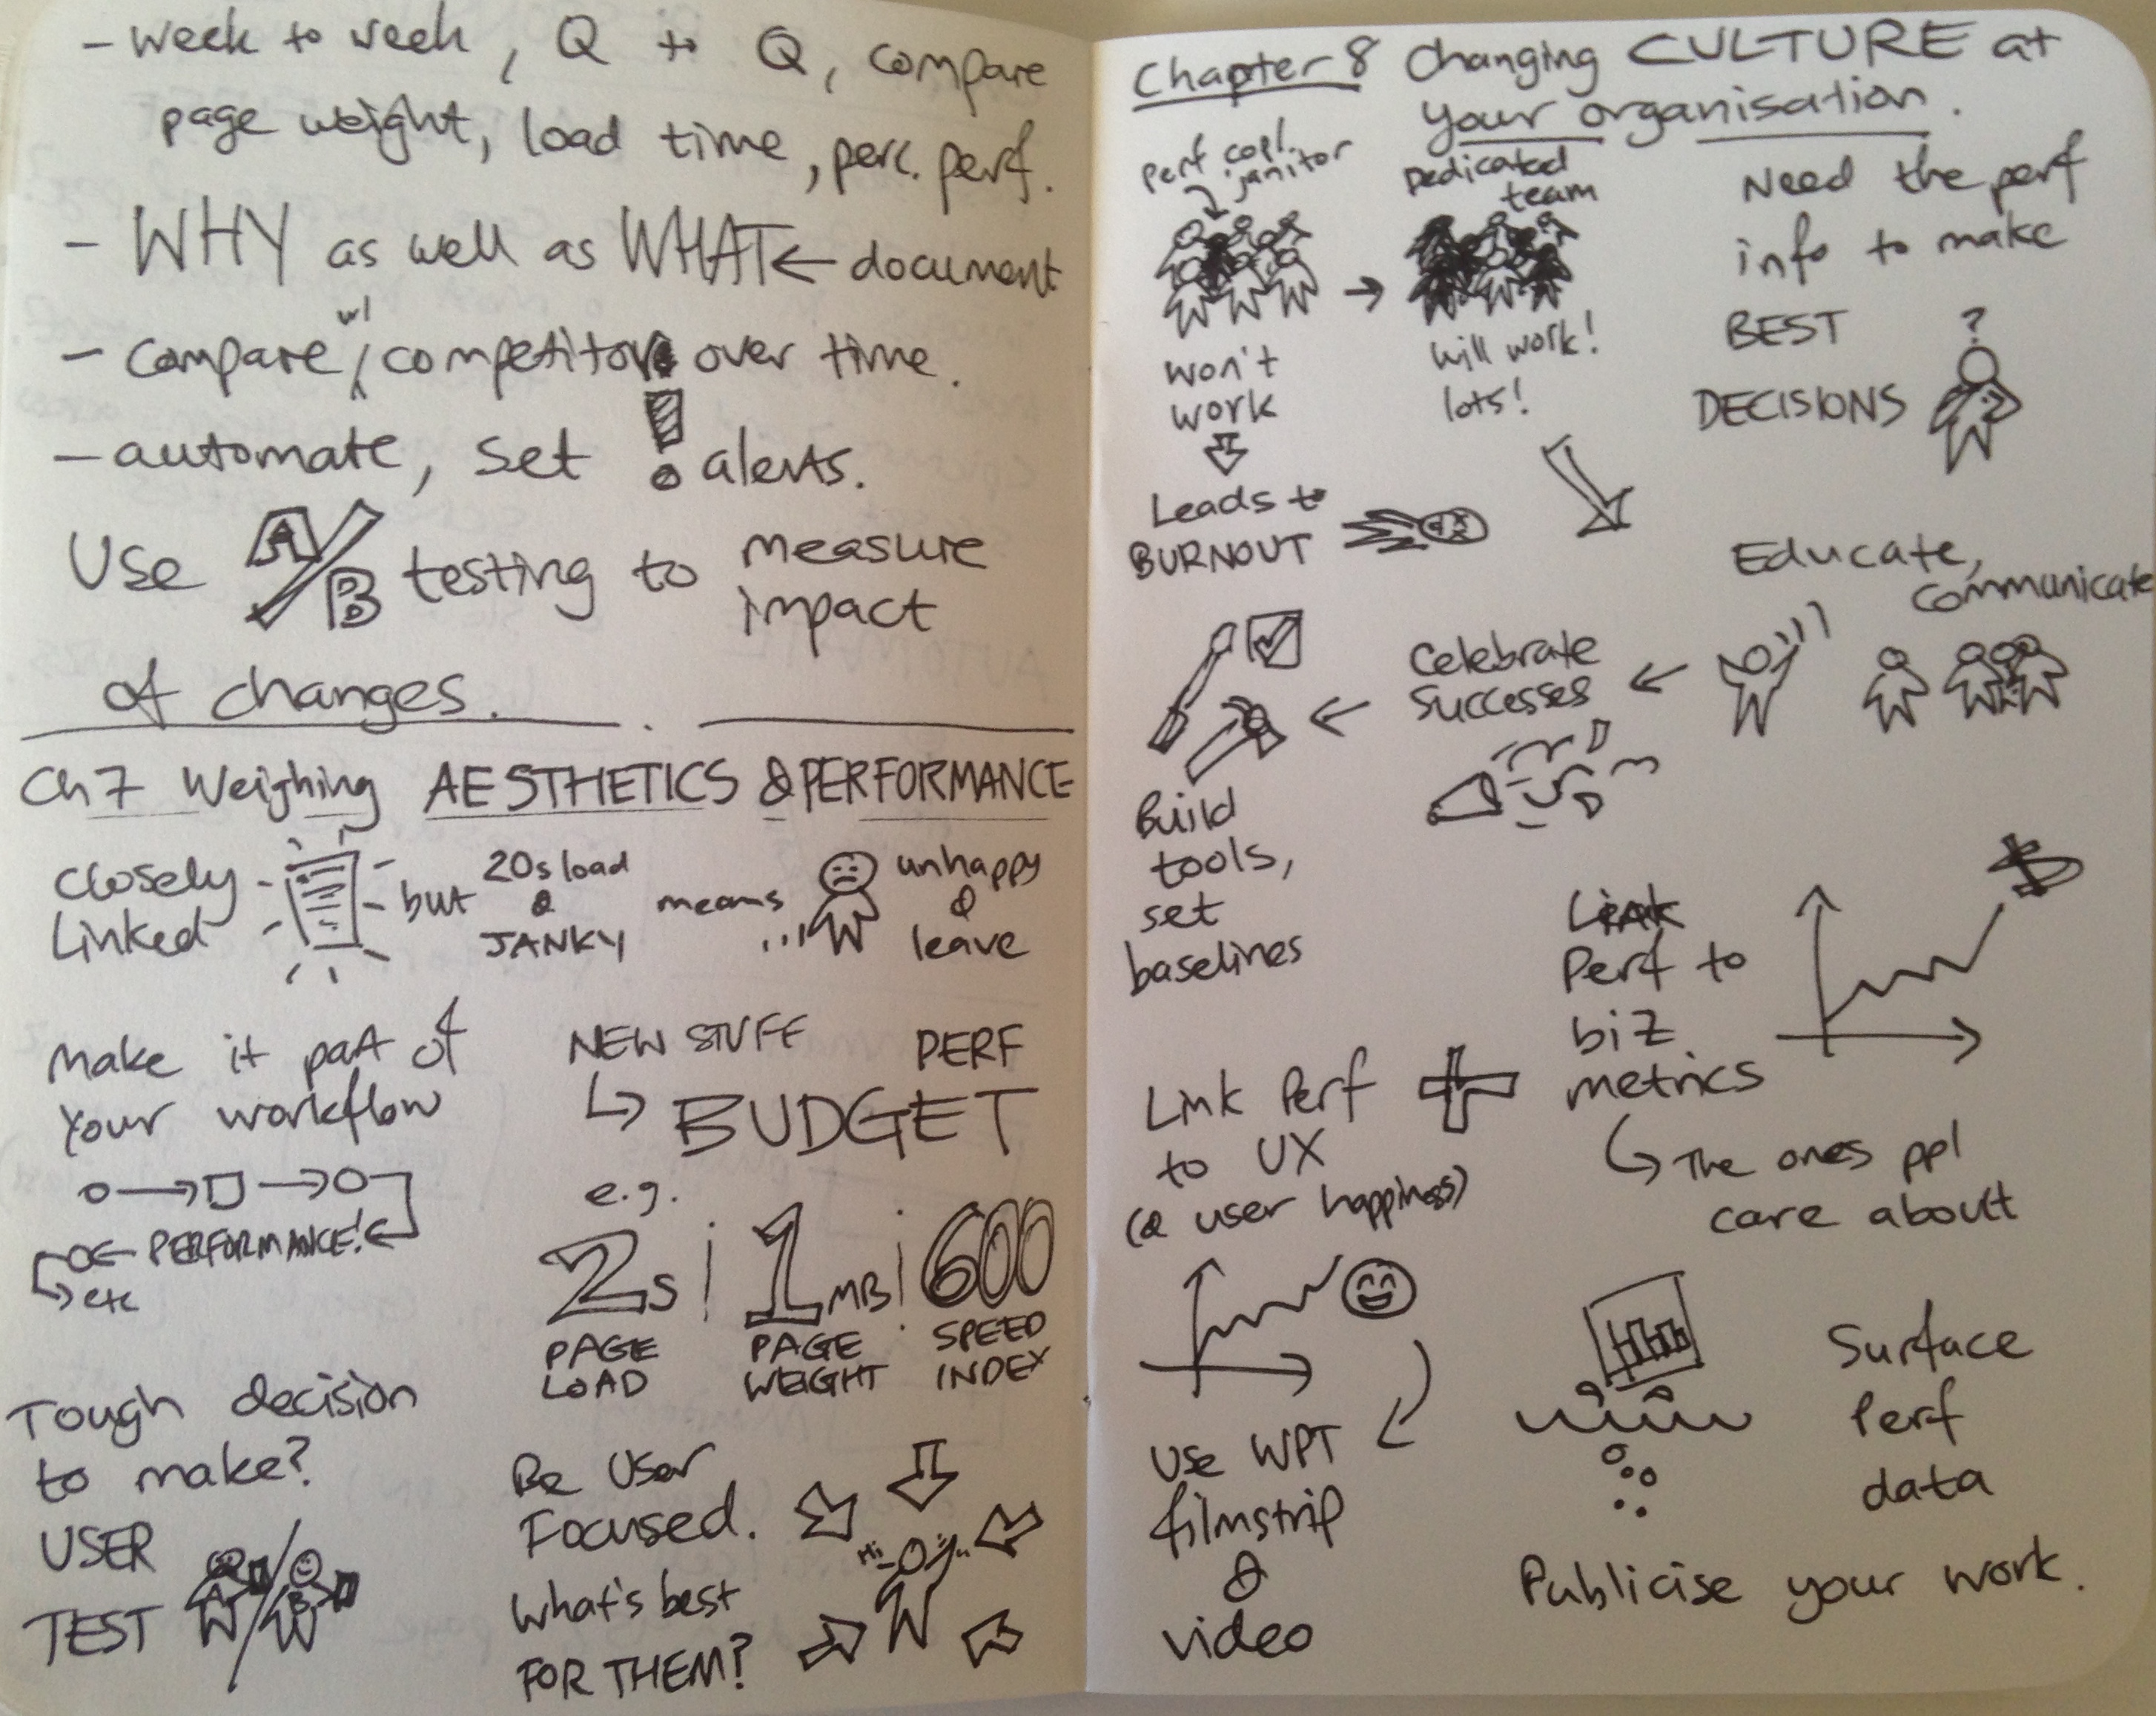 - Week to week, Q to Q, compare
page weight, load time, perc. perf.
- WHY as well as WHAT ← document
w/
- Compare competitors over time.
- automate, set ! alerts.
Use A/B testing to measure
impact
of changes.
Ch 7 Weighing AESTHETICS & PERFORMANCE
Closely
Linked
but
20s load
&
JANKY
means
...
unhappy
&
leave
Make it part of
your workflow
PERFORMANCE!
etc
NEW STUFF
PERF
BUDGET
e.g.
2s | 1MB | 600
PAGE
LOAD
PAGE
WEIGHT
SPEED
INDEX
Tough decision
to make?
USER
TEST
A / B
Be User
Focused.
Hi
What's best
FOR THEM?
Chapter 8 Changing CULTURE at
your organisation.
perf
janitor
won't
work
Leads to
BURNOUT
Dedicated
team
will work!
lots!
Need the perf
info to make
BEST
DECISIONS
?
Educate,
communicate
Celebrate
Successes
Build
tools,
set
baselines
Link Perf
to UX
(& user happiness)
+
Link
Perf to
biz
metrics
$
The ones ppl
care about
Use WPT
filmstrip
&
video
Surface
Perf
data
Publicise your work.